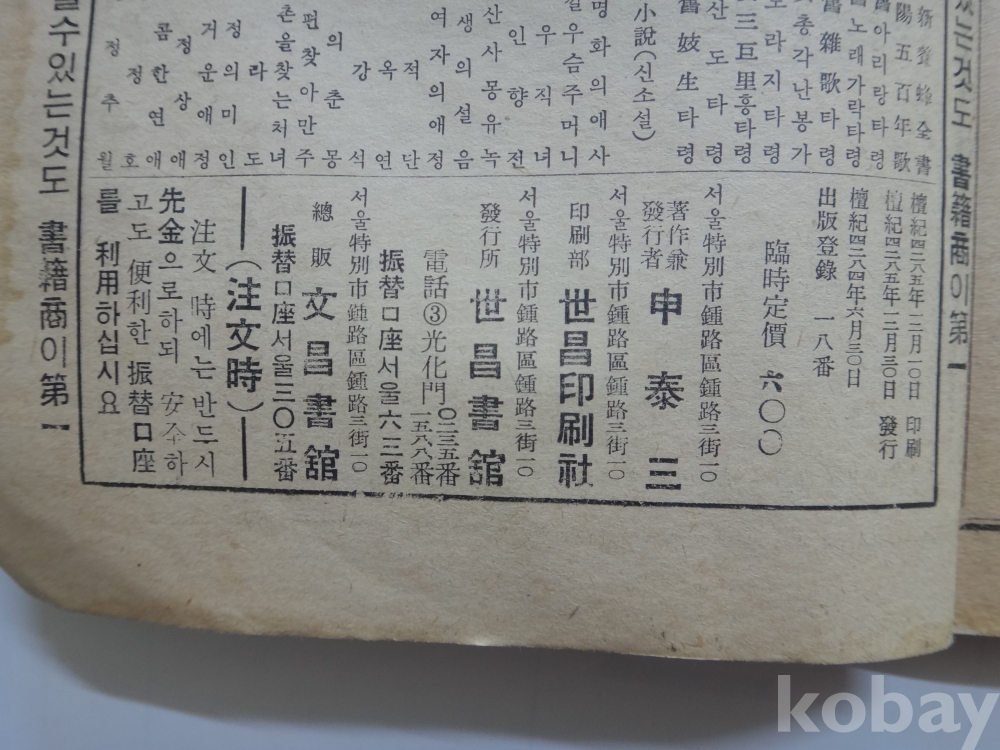 書籍商이第一
新養蜂全書
陽五百年歌
舊아리랑타령
舊노래가락타령
舊雜歌타령
총각난봉가
三巨里흥타령
도라지타령
산도타령
舊妓生타령
小說(신소설)
명화의애사
우슴주머니
우직녀
인향전
산사몽유녹
생의설음
여자의애정
적단
옥연
강석
의춘몽
편찾아만주
촌을찾는처녀
라도
정의미인
거운애정
정상애
곰한연애
정정호
추월
檀紀四二八五年一二月一〇日 印刷
檀紀四二八五年一二月三〇日 發行
檀紀四二八四年六月三〇日
出版登錄 一八番
臨時定價 六〇〇
서울特別市鍾路區鍾路三街一〇
著作兼
發行者 申泰三
서울特別市鍾路區鍾路三街一〇
印刷部 世昌印刷社
서울特別市鍾路區鍾路三街一〇
發行所 世昌書館
電話③光化門 〇二三五番
一五八八番
振替口座서울六三番
서울特別市鍾路區鍾路三街一〇
總販 文昌書舘
振替口座서울三〇五番
(注文時)
注文 時에는 반드시
先金으로하되 安全하
고도 便利한 振替口座
를 利用하십시요
수있는것도 書籍商이第一
kobay